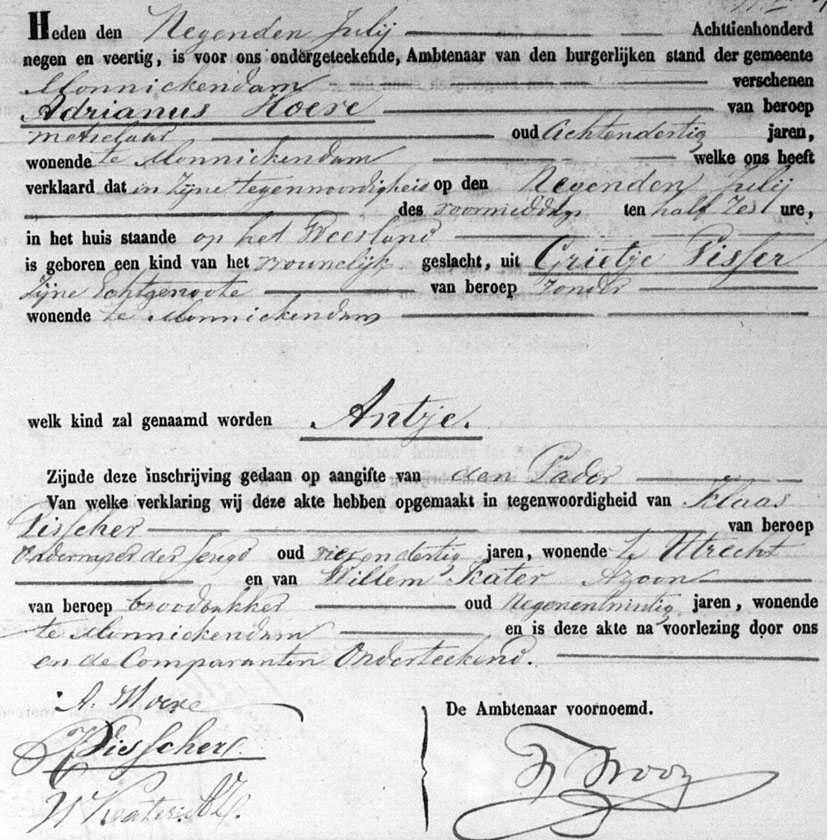 Heden den Negenden Julij Achttienhonderd
negen en veertig, is voor ons ondergeteekende, Ambtenaar van den burgerlijken stand der gemeente
Monnickendam verschenen
Adrianus Hoeve van beroep
metselaar oud Achtendertig jaren,
wonende te Monnickendam welke ons heeft
verklaard dat in zijne tegenwoordigheid op den Negenden Julij
des voormiddags ten half zes ure,
in het huis staande op het
is geboren een kind van het vrouwelijk geslacht, uit Grietje Visser
zijne Echtgenoote van beroep zonder
wonende te Monnickendam
welk kind zal genaamd worden Antje.
Zijnde deze inschrijving gedaan op aangifte van den Vader
Van welke verklaring wij deze akte hebben opgemaakt in tegenwoordigheid van Klaas
Visscher van beroep
der Jeugd oud jaren, wonende te Utrecht
en van Willem Kater Azoon
van beroep broodbakker oud jaren, wonende
te Monnickendam en is deze akte na voorlezing door ons
en de Comparanten Onderteekend.
A. Hoeve
De Ambtenaar voornoemd.
K Visscher
W Kater Az.